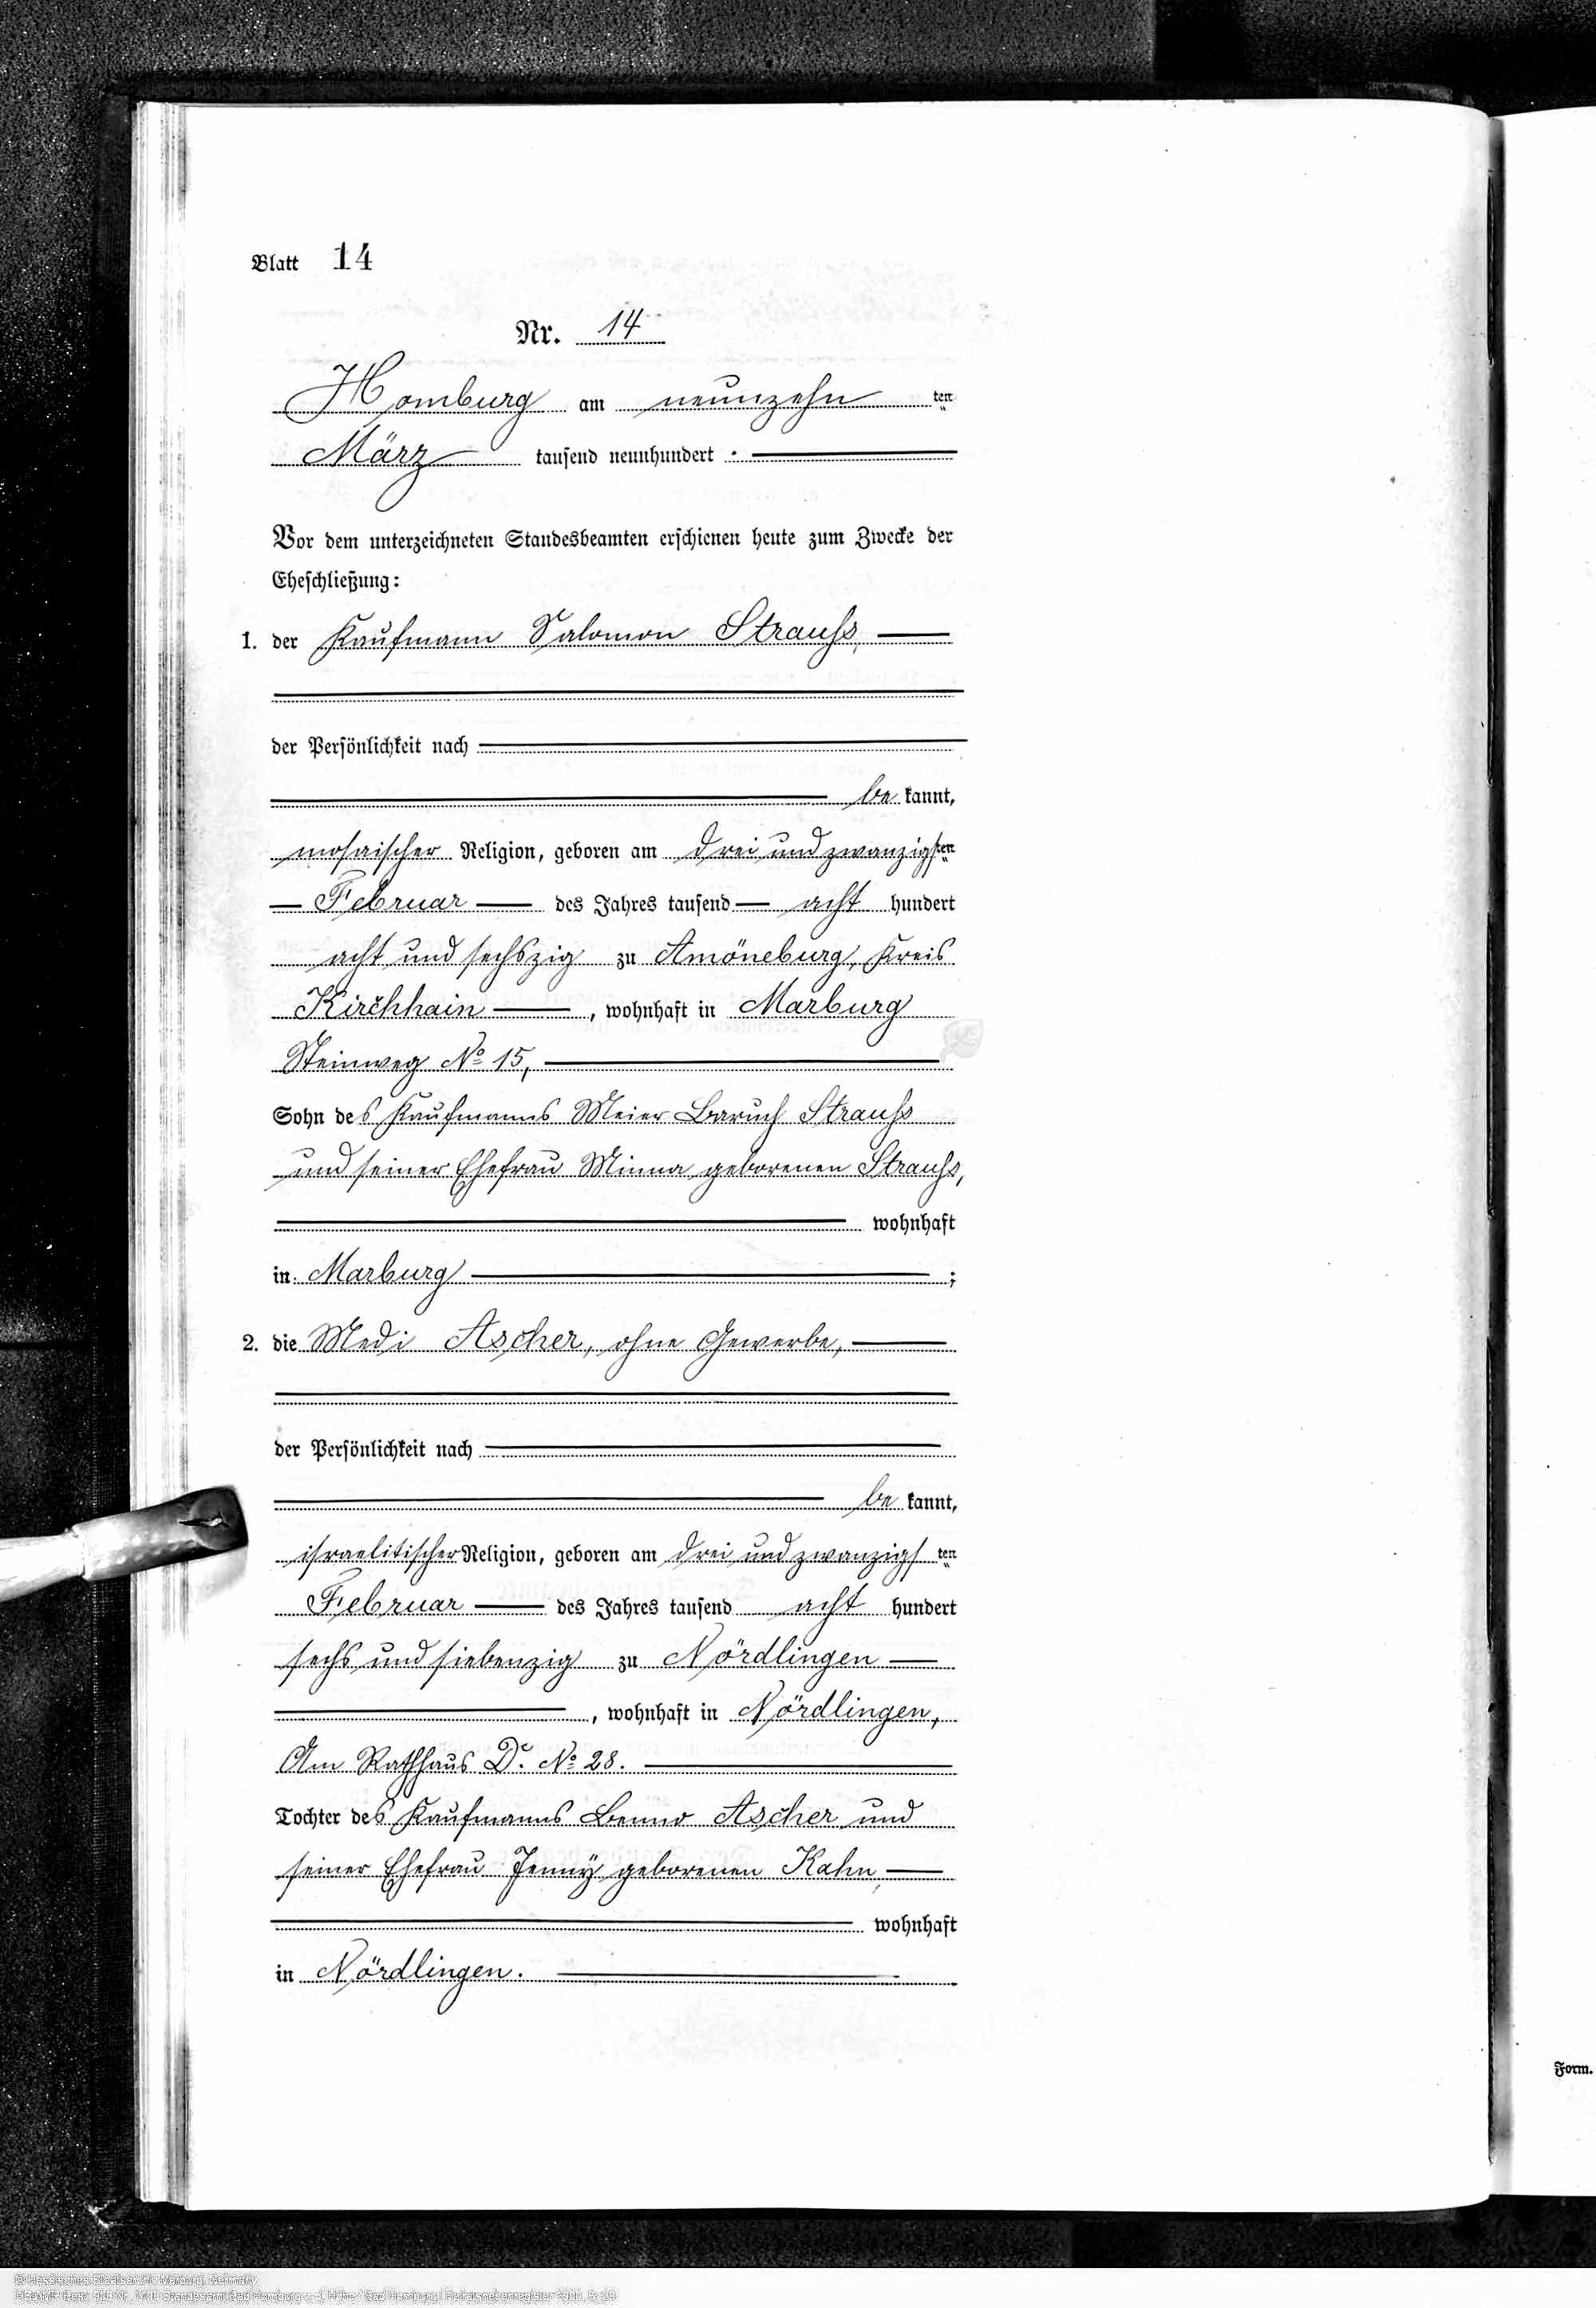 Blatt 14
Nr. 14
Homburg am neunzehn ten
März tausend neunhundert
Vor dem unterzeichneten Standesbeamten erschienen heute zum Zwecke der
Eheschließung:
1. der Kaufmann Salomon Strauß,
der Persönlichkeit nach
be kannt,
mosaischer Religion, geboren am drei und zwanzigsten
Februar des Jahres tausend acht hundert
acht und sechszig zu Amöneburg, Kreis
Kirchhain, wohnhaft in Marburg
Steinweg No 15,
Sohn des Kaufmanns Meier Baruch Strauß
und seiner Ehefrau Minna geborenen Strauß,
wohnhaft
in Marburg ;
2. die Medi Ascher, ohne Gewerbe,
der Persönlichkeit nach
be kannt,
israelitischer Religion, geboren am drei und zwanzigs ten
Februar des Jahres tausend acht hundert
sechs und siebenzig zu Nördlingen
, wohnhaft in Nördlingen,
Am Rathhaus D. No 28.
Tochter des Kaufmanns Benno Ascher und
seiner Ehefrau Jenny geborenen Kahn,
wohnhaft
in Nördlingen.
Form.
© Hessisches Staatsarchiv Marburg, Germany